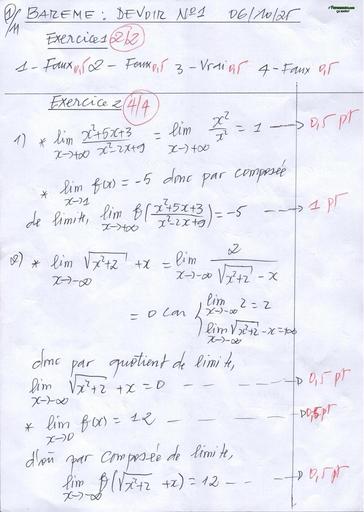 1/11 BAREME : DEVOIR N°1 06/10/25
Exercice 1 2/2
1 - Faux 0,5 2 - Faux 0,5 3 - Vrai 0,5 4 - Faux 0,5
Exercice 2 4/4
1) * lim x→+∞ (x²+5x+3)/(x²-2x+9) = lim x→+∞ x²/x² = 1 → 0,5 pt
* lim x→1 f(x) = -5 donc par composée
de limite, lim x→+∞ f((x²+5x+3)/(x²-2x+9)) = -5 → 1 pt
2) * lim x→-∞ √(x²+2) + x = lim x→-∞ 2/(√(x²+2) - x)
= 0 car { lim x→-∞ 2 = 2
lim x→-∞ √(x²+2) - x = +∞
donc par quotient de limite,
lim x→-∞ √(x²+2) + x = 0 → 0,5 pt
* lim x→0 f(x) = 12 → 0,5 pt
d'où par composée de limite,
lim x→-∞ f(√(x²+2) + x) = 12 → 0,5 pt